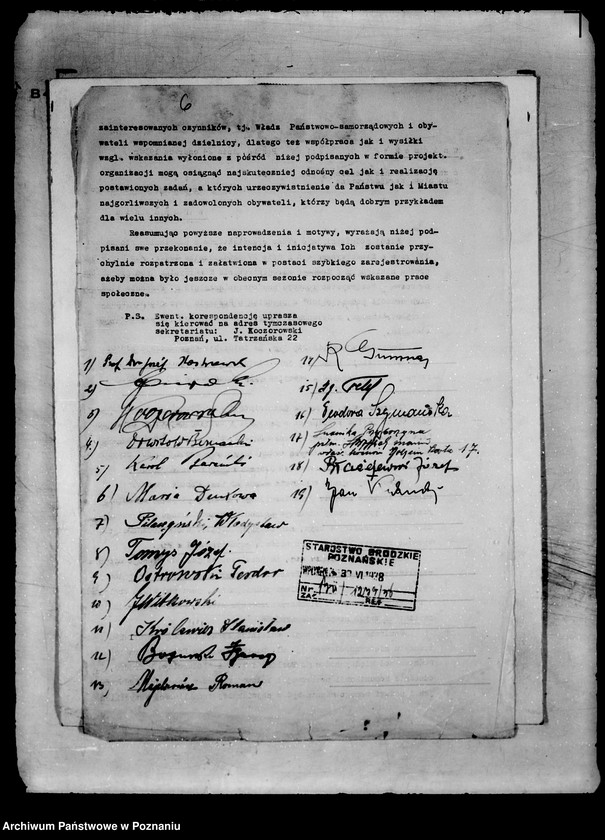 6
zainteresowanych czynników, tj. Władz Państwowo-samorządowych i oby-
wateli wspomnianej dzielnicy, dlatego też współpraca jak i wysiłki
wzgl. wskazania wyłonione z pośród niżej podpisanych w formie projekt.
organizacji mogą osiągnąć najskuteczniej odnośny cel jak i realizację
postawionych zadań, a których urzeczywistnienie da Państwu jak i Miastu
najgorliwszych i zadowolonych obywateli, którzy będą dobrym przykładem
dla wielu innych.
Reasumując powyższe naprowadzenia i motywy, wyrażają niżej pod-
pisani swe przekonanie, że intencja i inicjatywa Ich zostanie przy-
chylnie rozpatrzona i załatwiona w postaci szybkiego zarejestrowania,
ażeby można było jeszcze w obecnym sezonie rozpocząć wskazane prace
społeczne.
P.S. Ewent. korespondencję uprasza
się kierować na adres tymczasowego
sekretariatu: J. Koczorowski
Poznań, ul. Tatrzańska 22
1) Prof. Dr Józef
2)
3)
4.)
5) Karol
6) Maria
7) Władysław
8) Tomys Józef.
9) Ostrowski Teodor
10) J Witkowski
11) Królewicz Stanisław
12)
13) Roman
14)
15)
16) Teodora Szymańska
17
18) Józef
19) Jan
STAROSTWO GRODZKIE
POZNAŃSKIE
Nr.
ZAŁ. REF.
Archiwum Państwowe w Poznaniu